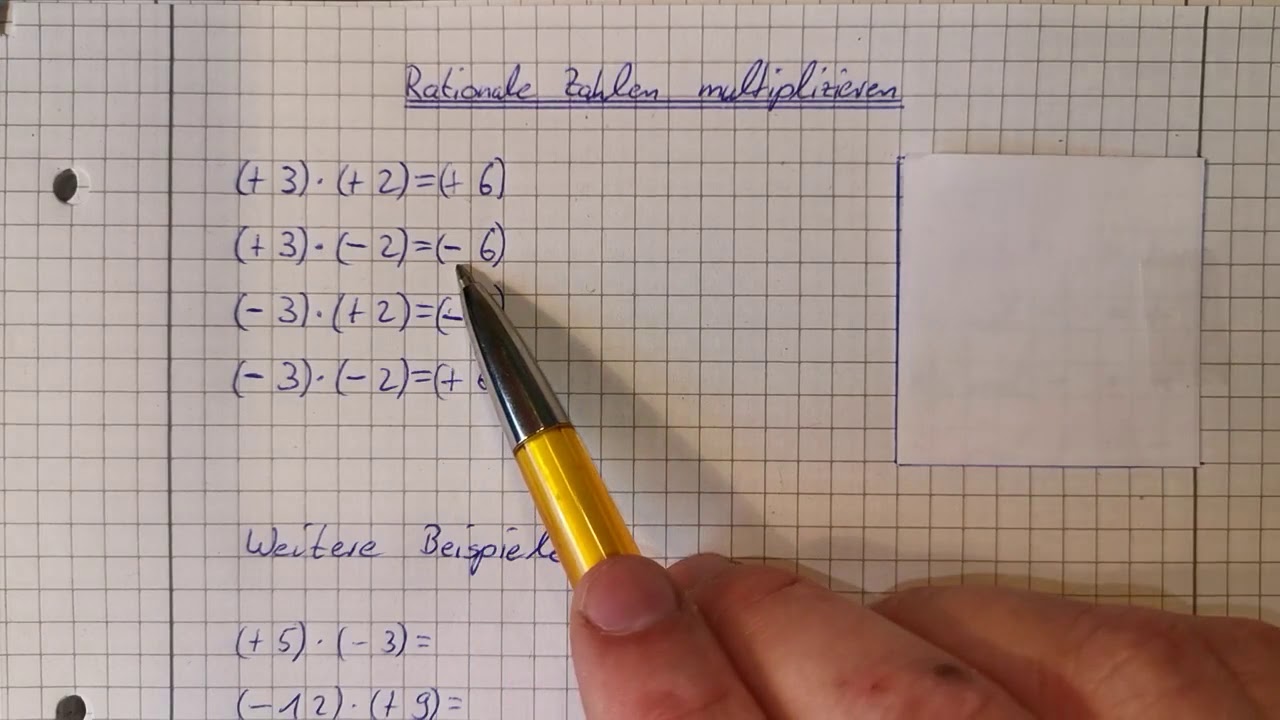 Rationale Zahlen multiplizieren
(+ 3) · (+ 2) = (+ 6)
(+ 3) · (- 2) = (- 6)
(- 3) · (+ 2) = (-
(- 3) · (- 2) = (+
Weitere Beispiele
(+ 5) · (- 3) =
(- 12) · (+ 9) =